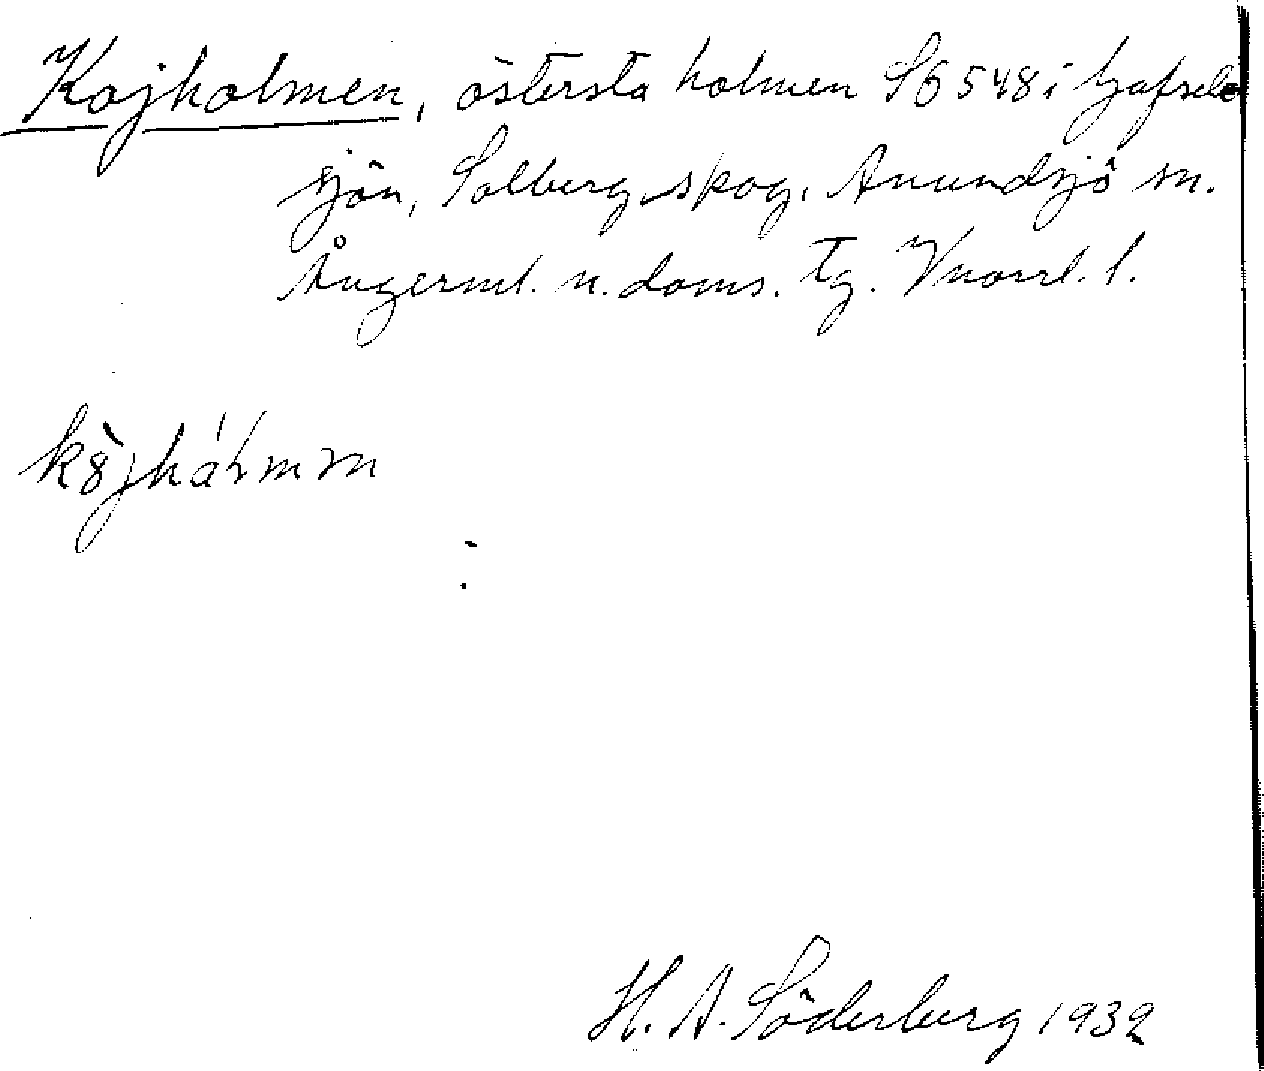 Kojholmen, östersta holmen S6548 i Gafsele
sjön, Solberg, skog. Anundsjö sn.
Ångerml. n. doms. tg. Vnorrl. l.
H. A. Söderberg 1932